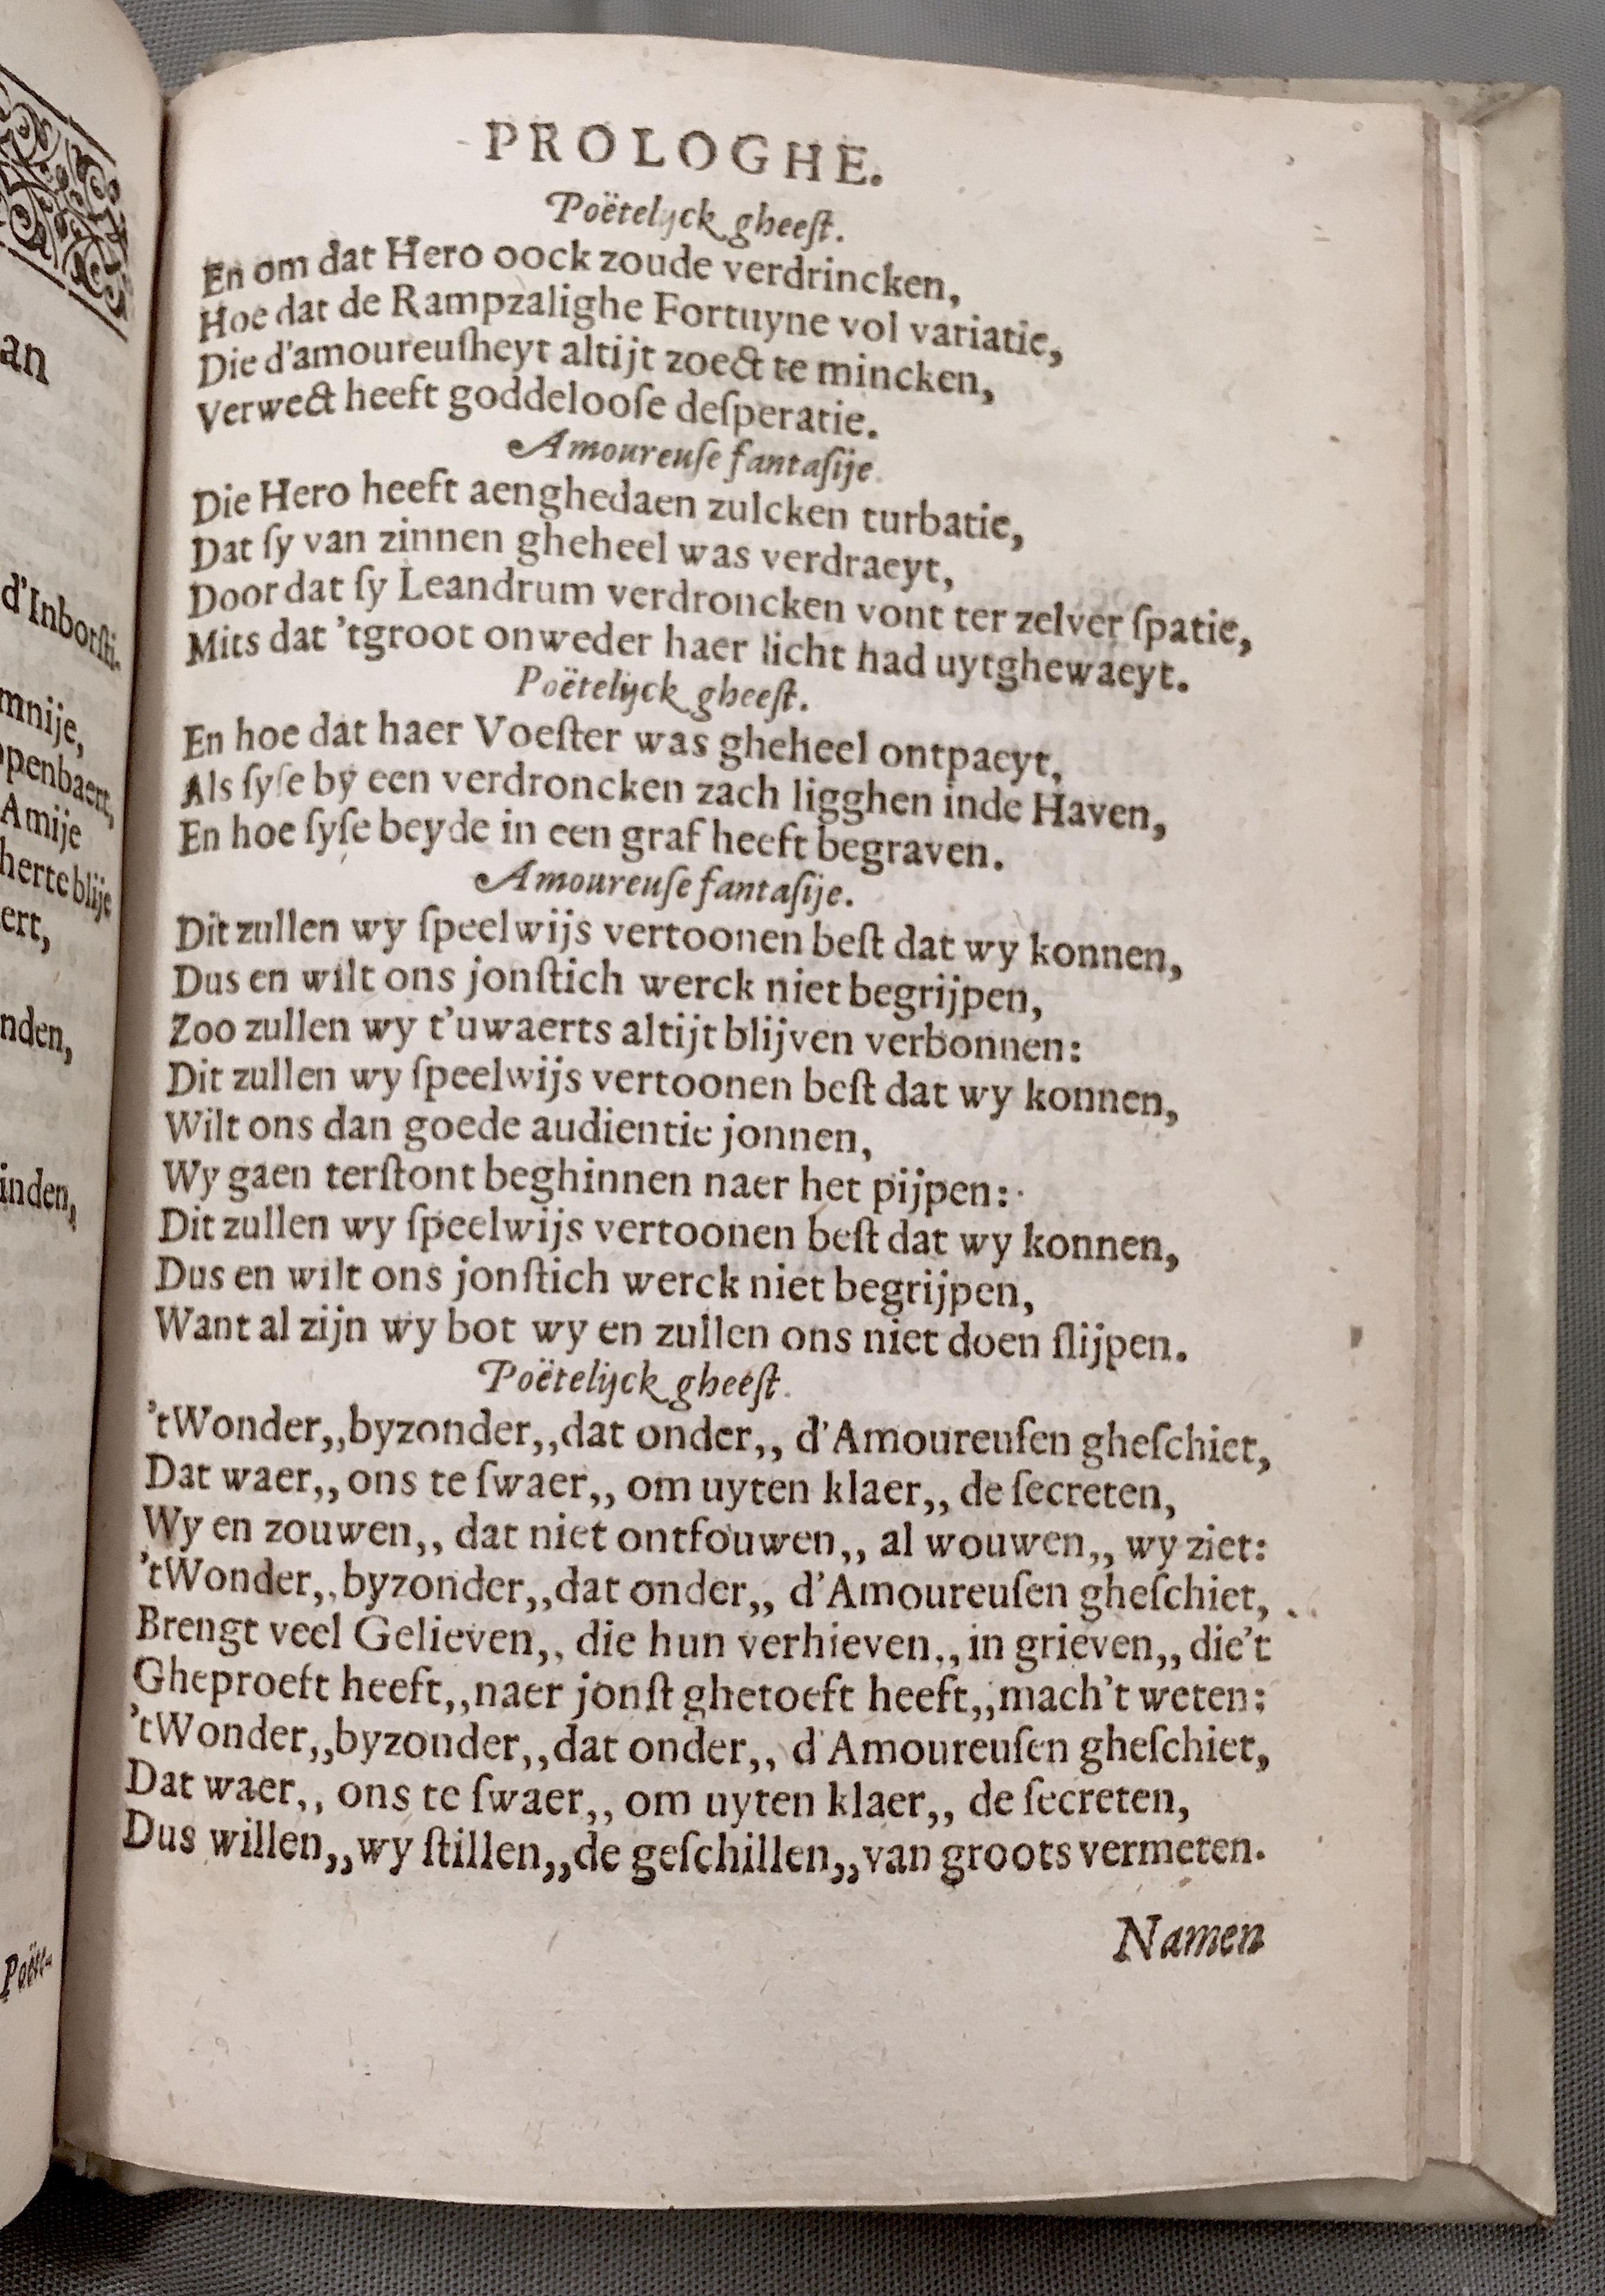 an
d'Inborſti-
mnije,
openbaert,
Amije
herte blije
ert,
nden,
inden,
Poëte-
PROLOGHE.
Poëtelijck gheeſt.
En om dat Hero oock zoude verdrincken,
Hoe dat de Rampzalighe Fortuyne vol variatie,
Die d'amoureuſheyt altijt zoect te mincken,
Verwect heeft goddelooſe deſperatie.
Amoureuſe fantaſije.
Die Hero heeft aenghedaen zulcken turbatie,
Dat ſy van zinnen gheheel was verdraeyt,
Door dat ſy Leandrum verdroncken vont ter zelver ſpatie,
Mits dat 'tgroot onweder haer licht had uytghewaeyt.
Poëtelijck gheeſt.
En hoe dat haer Voeſter was gheheel ontpaeyt,
Als ſyſe by een verdroncken zach ligghen inde Haven,
En hoe ſyſe beyde in een graf heeft begraven.
Amoureuſe fantaſije.
Dit zullen wy ſpeelwijs vertoonen beſt dat wy konnen,
Dus en wilt ons jonſtich werck niet begrijpen,
Zoo zullen wy t'uwaerts altijt blijven verbonnen:
Dit zullen wy ſpeelwijs vertoonen beſt dat wy konnen,
Wilt ons dan goede audientie jonnen,
Wy gaen terſtont beghinnen naer het pijpen:
Dit zullen wy ſpeelwijs vertoonen beſt dat wy konnen,
Dus en wilt ons jonſtich werck niet begrijpen,
Want al zijn wy bot wy en zullen ons niet doen ſlijpen.
Poëtelijck gheeſt.
'tWonder,,byzonder,,dat onder,, d'Amoureuſen gheſchiet,
Dat waer,, ons te ſwaer,, om uyten klaer,, de ſecreten,
Wy en zouwen,, dat niet ontfouwen,, al wouwen,, wy ziet:
'tWonder,,byzonder,,dat onder,, d'Amoureuſen gheſchiet,
Brengt veel Gelieven,, die hun verhieven,,in grieven,, die't
Gheproeft heeft,,naer jonſt ghetoeft heeft,,mach't weten:
'tWonder,,byzonder,,dat onder,, d'Amoureuſen gheſchiet,
Dat waer,, ons te ſwaer,, om uyten klaer,, de ſecreten,
Dus willen,,wy ſtillen,,de geſchillen,,van groots vermeten.
Namen